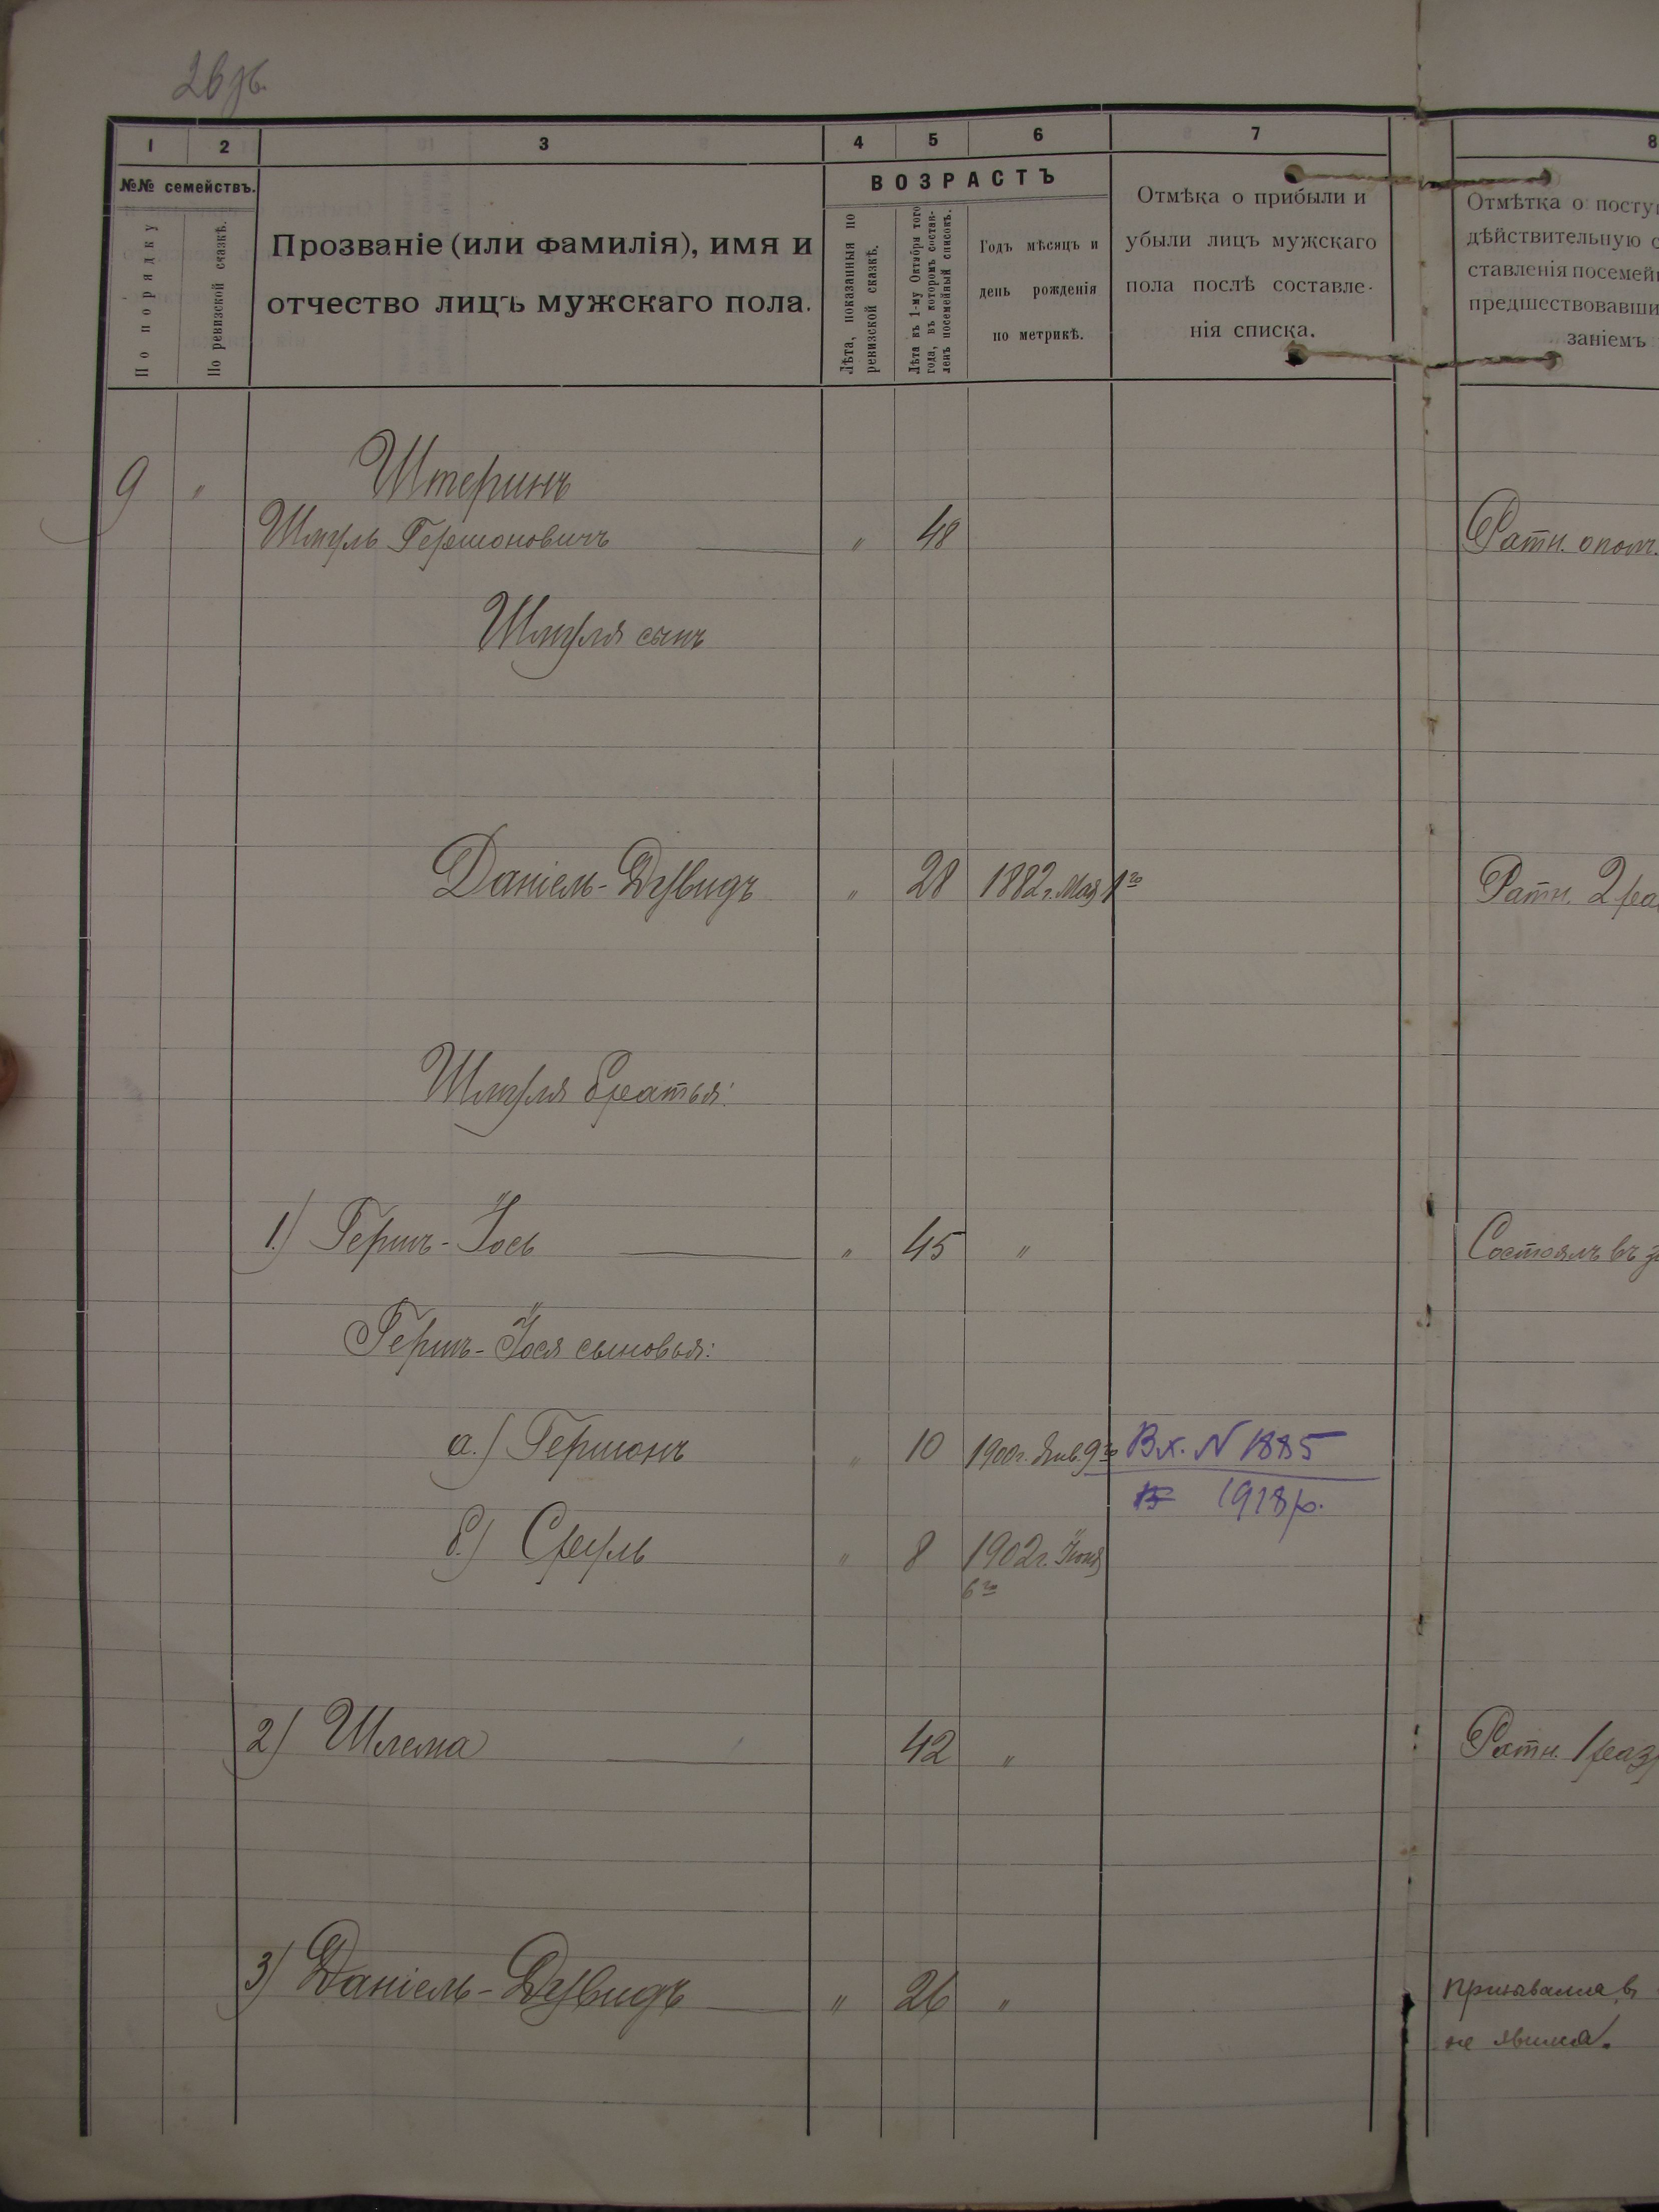 26 об.
1 2 3 4 5 6 7 8
№№ семействъ.
По порядку
По ревизской сказкѣ.
Прозваніе (или фамилія), имя и
отчество лицъ мужскаго пола.
ВОЗРАСТЪ
Лѣта, показанныя по
ревизской сказкѣ.
Лѣта къ 1-му Октября того
года, въ которомъ состав-
ленъ посемейный списокъ.
Годъ мѣсяцъ и
день рожденія
по метрикѣ.
Отмѣка о прибыли и
убыли лицъ мужскаго
пола послѣ составле-
нія списка.
Отмѣтка о посту
дѣйствительную с
ставленія посемей
предшествовавши
заніемъ
9 " Штеринъ
Шмуль Гершоновичъ " 48 Ратн. ополч.
Шмуля сынъ
Даніель-Дувидъ " 28 1882 г. Мая 1го Ратн. 2 раз
Шмуля братья:
1.) Гершъ-Іось " 45 " Состоялъ въ з
Гершъ-Іося сыновья:
а.) Гершонъ " 10 1900 г. Янв. 9го Вх. N 1885
1918 р.
б.) Сруль " 8 1902 г. Іюня
6го
2) Шлема 42 " Ратн. 1 разр
3) Даніель-Дувидъ " 26 " призывался въ
не явился.